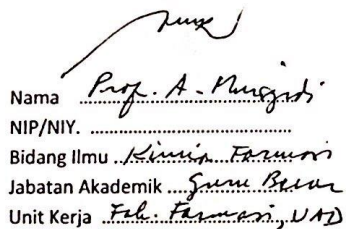 Nama Prof. A. Mursyidi
NIP/NIY. ................................
Bidang Ilmu Kimia Farmasi
Jabatan Akademik Guru Besar
Unit Kerja Fak. Farmasi, UAD